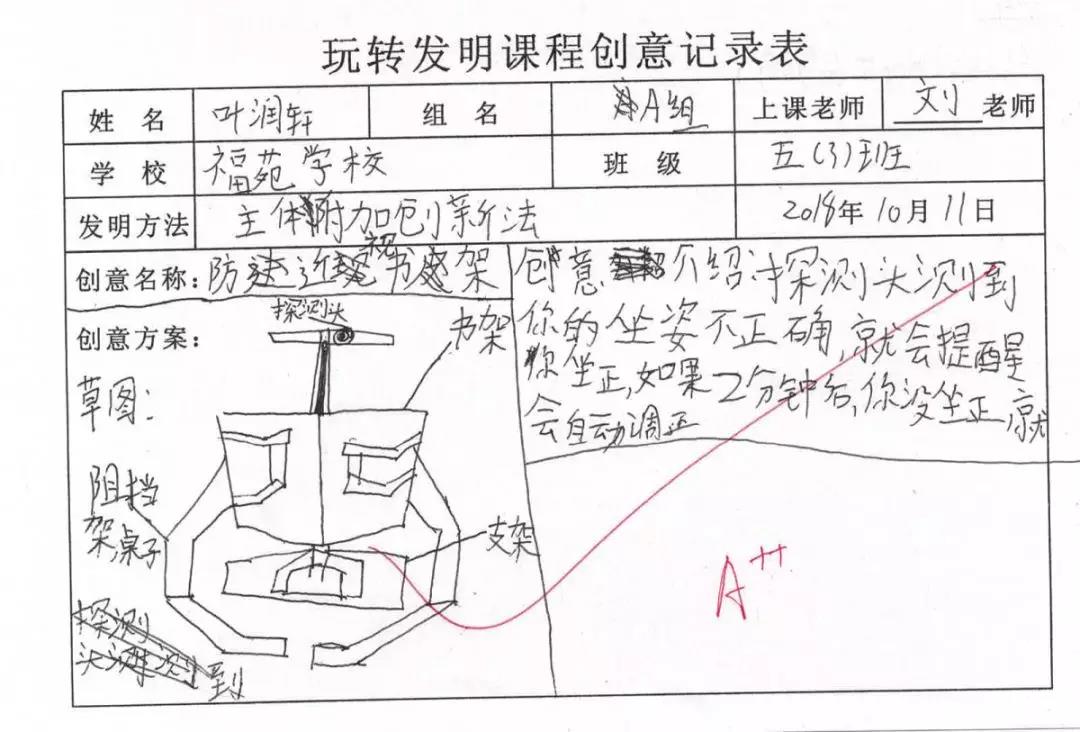 玩转发明课程创意记录表
姓 名 叶润轩 组 名 A组 上课老师 刘 老师
学 校 福苑学校 班 级 五(3)班
发明方法 主体附加创新法 2018年10月11日
创意名称:防近视书架
创意方案:
草图:
探测头
书架
阻挡
架,桌子
支架
探测
头测
到
创意介绍:探测头测到
你的坐姿不正确,就会提醒
你坐正,如果2分钟后,你没坐正,就
会自动调正
A++